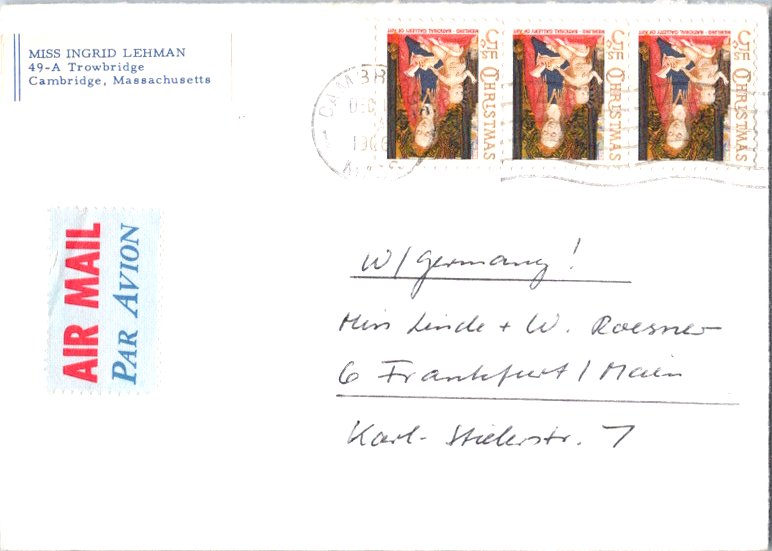 MISS INGRID LEHMAN
49-A Trowbridge
Cambridge, Massachusetts
CHRISTMAS 5c U.S.
MEMLING: NATIONAL GALLERY OF ART
CHRISTMAS 5c U.S.
MEMLING: NATIONAL GALLERY OF ART
CHRISTMAS 5c U.S.
MEMLING: NATIONAL GALLERY OF ART
CAMBR
DEC
1966
MASS
AIR MAIL
PAR AVION
W/Germany!
Miss Linde + W. Roesner
6 Frankfurt / Main
Karl-Stielerstr. 7